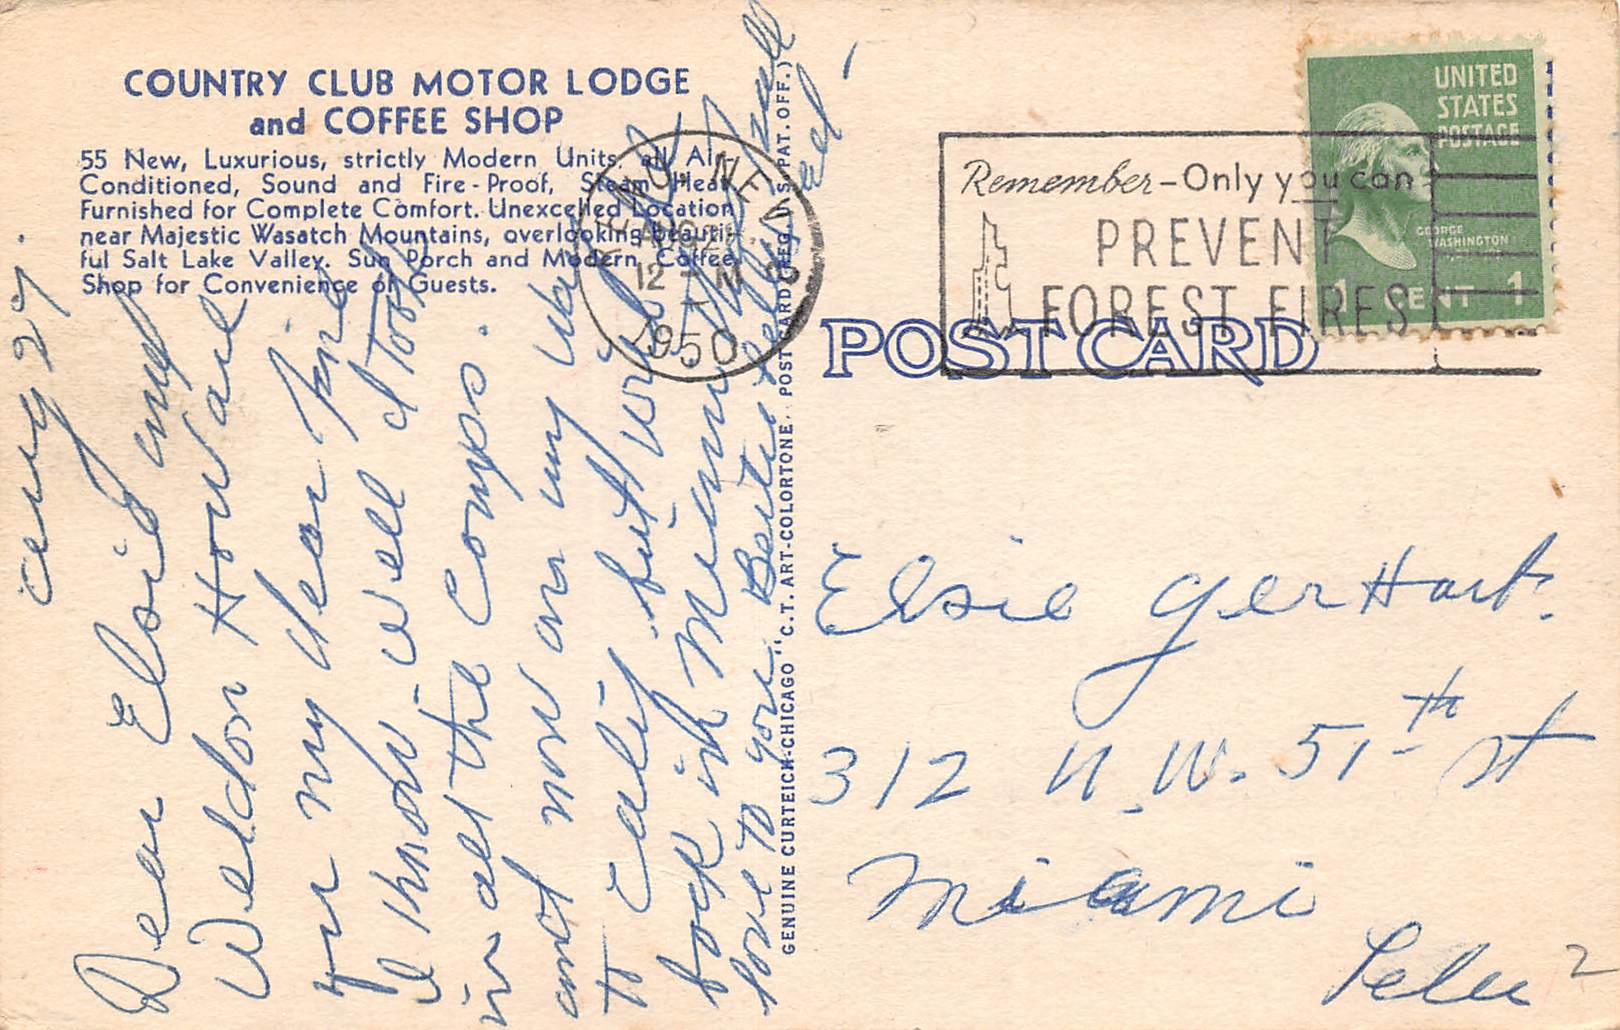 COUNTRY CLUB MOTOR LODGE
and COFFEE SHOP
55 New, Luxurious, strictly Modern Units, all Air-
Conditioned, Sound and Fire-Proof, Steam Heat
Furnished for Complete Comfort. Unexcelled Location
near Majestic Wasatch Mountains, overlooking beauti-
ful Salt Lake Valley. Sun Porch and Modern Coffee
Shop for Convenience of Guests.
Aug 27.
Dear Elsie and
Weldon Howard
my dear fine
I know well I took
in all the Comps.
and now on my way
to Calif. but will
back in Miami
love to you
GENUINE CURTEICH-CHICAGO "C.T. ART-COLORTONE" POST CARD (REG. U.S. PAT. OFF.)
RENO, NEV.
AUG 28
12 - M
1950
Remember - Only you can
PREVENT
FOREST FIRES
UNITED
STATES
POSTAGE
GEORGE
WASHINGTON
1 CENT 1
POST CARD
Elsie GerHart.
312 N.W. 51th St
Miami
2